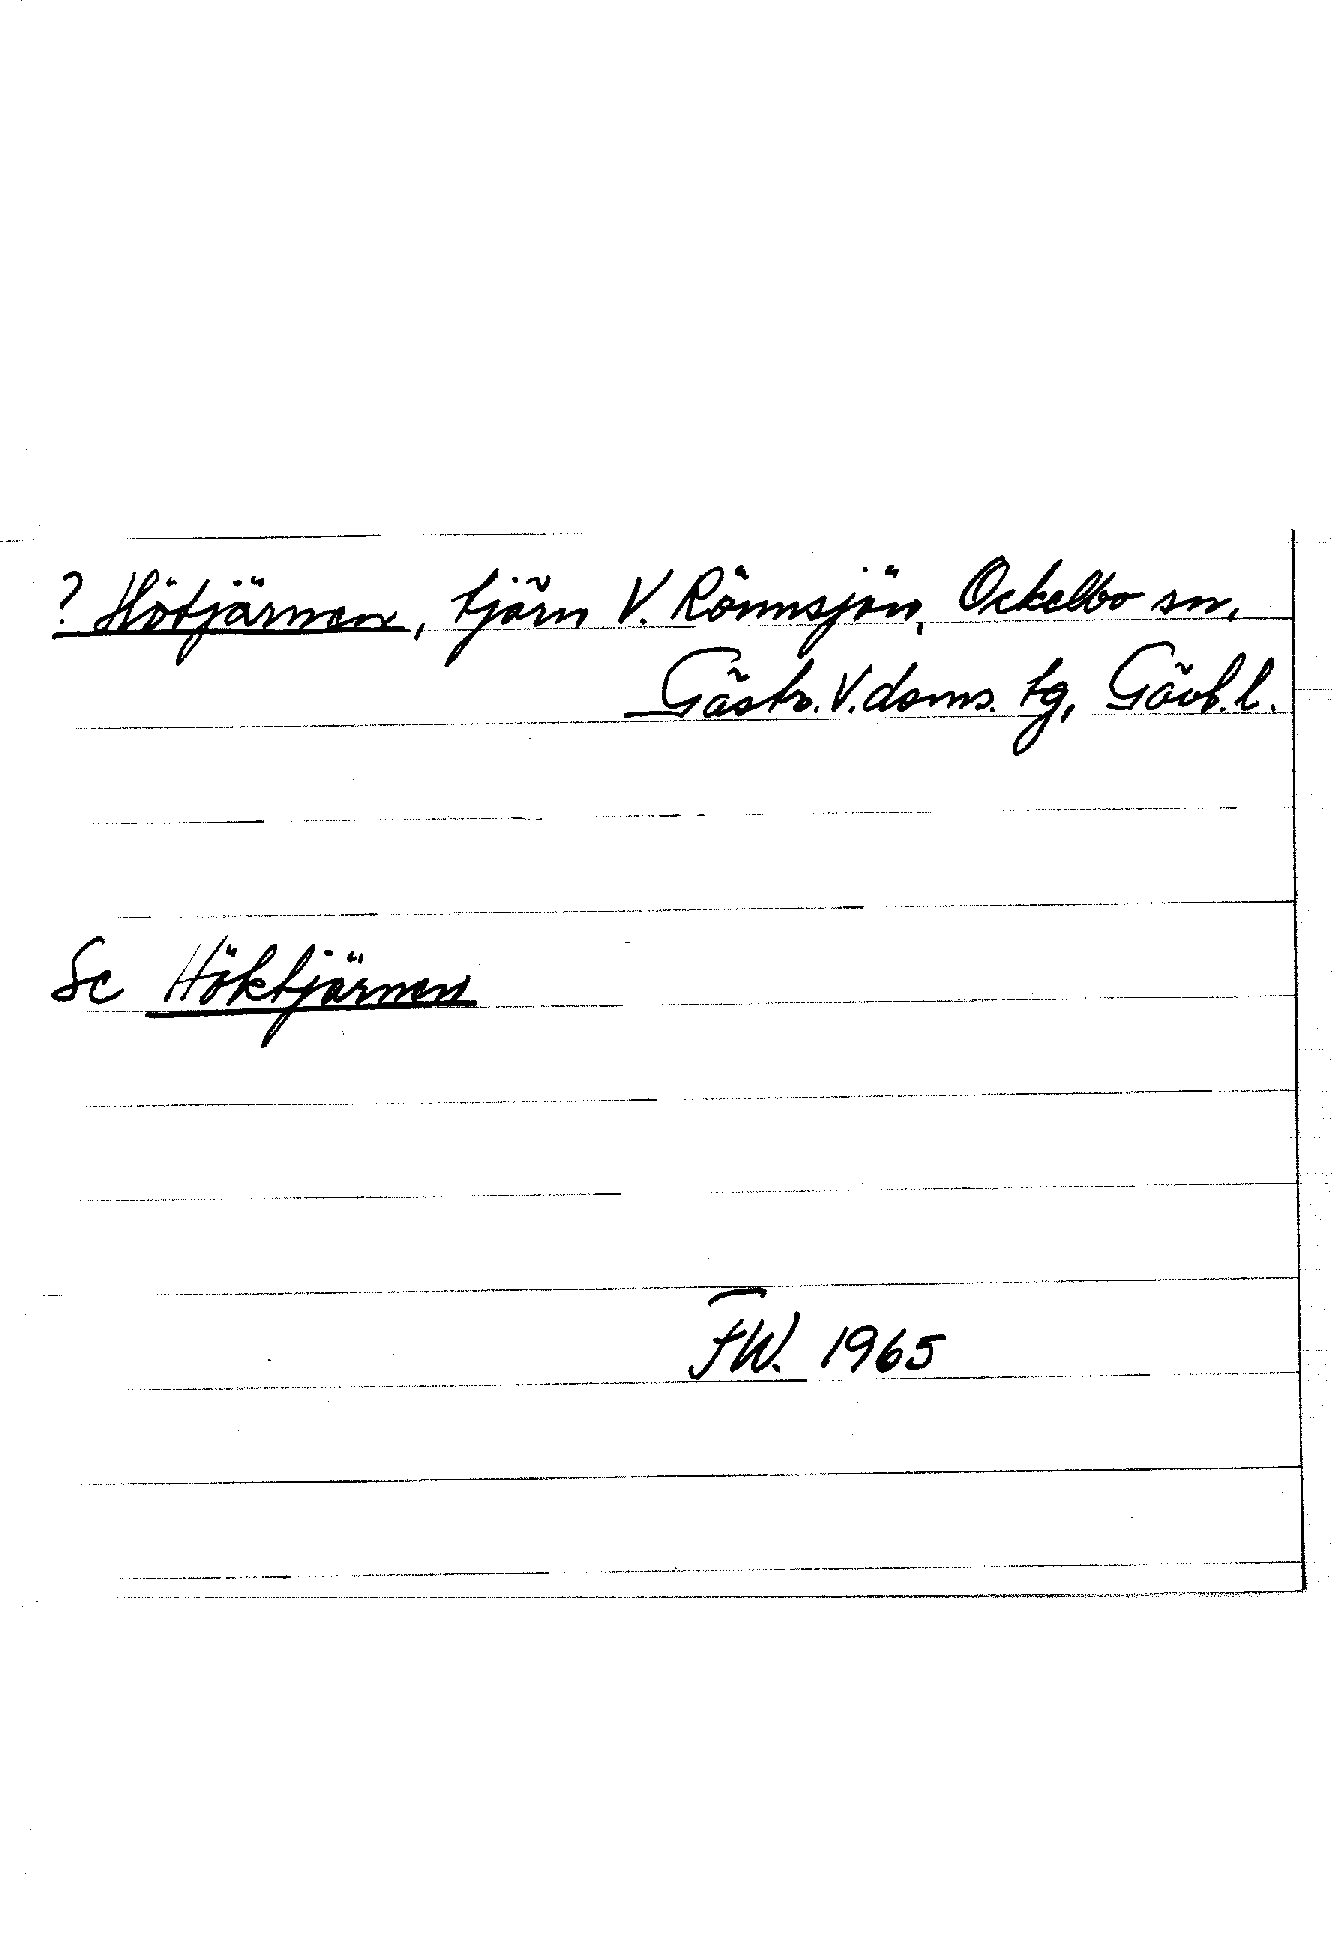 ? Hötjärnen, tjärn V. Rönnsjön, Ockelbo sn,
Gästr. V. doms. tg, Gävl. l.
Se Höktjärnen
FW. 1965